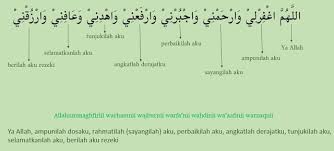 اللَّهُمَّ اغْفِرْلِيْ وَارْحَمْنِيْ وَاجْبُرْنِيْ وَارْفَعْنِيْ وَاهْدِنِيْ وَعَافِنِيْ وَارْزُقْنِيْ
tunjukilah aku
perbaikilah aku
Ya Allah
selamatkanlah aku
ampunilah aku
berilah aku rezeki
angkatlah derajatku
sayangilah aku
Allahummaghfirlii warhamnii wajburnii warfa'nii wahdinii wa'aafinii warzuqnii
Ya Allah, ampunilah dosaku, rahmatilah (sayangilah) aku, perbaikilah aku, angkatlah derajatku, tunjukilah aku,
selamatkanlah aku, berilah aku rezeki